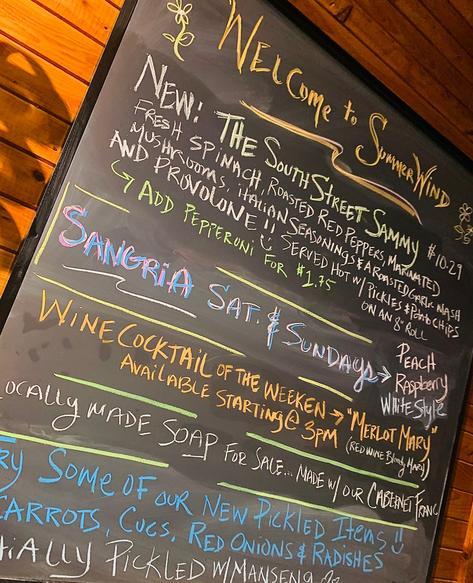 Welcome to SummerWind
New: The South Street Sammy $10.29
Fresh Spinach, Roasted Red Peppers, Marinated
Mushrooms, Italian Seasonings & A Roasted Garlic Mash
And Provolone!! Served Hot w/ Pickles & Potato Chips
on an 8" Roll
Add Pepperoni for $1.75
Sangria Sat. & Sundays → Peach
Raspberry
White Style
Wine Cocktail of the Weeken → "Merlot Mary"
Available Starting @ 3pm (Red Wine Bloody Mary)
ocally made Soap For Sale... made w/ our Cabernet Franc
ry Some of our New Pickled Items!!
Carrots, Cucs, Red Onions & Radishes
tially Pickled w/ Manseng